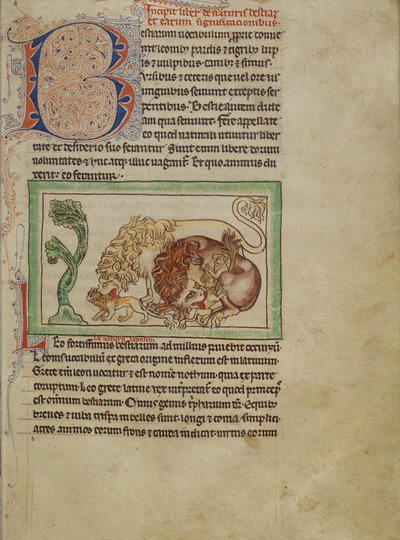 Incipit liber de naturis bestiar
et earum significationibus
Bestiarum uocabulum proprie conue
nit leonibus pardis & tigribus lup
is & uulpibus canibus & simiis
Vrsibus & ceteris que uel ore ul
unguibus seuiunt exceptis ser
pentibus. Bestie autem dicte
a ui qua seuiunt. Fere appellate
eo quod naturali utuntur liber
tate et desiderio suo ferantur. Sunt enim libere eorum
uoluntates & huc atq; illuc uagantur. Et quo animus du
xerit eo feruntur.
Leo fortissimus bestiarum ad nullius pauebit occursum
Leonis uocabulum ex greca origine inflexum est in latinum
Grece enim leon uocatur & est nomen nothum quia ex parte
corruptum. Leo grece latine rex interpretatur eo quod princeps
est omnium bestiarum. Cuius genus tripharium
breues & iuba crispa inbelles sunt. longi & coma simplici
acres. animos eorum frons & cauda indicat. uirtus eorum